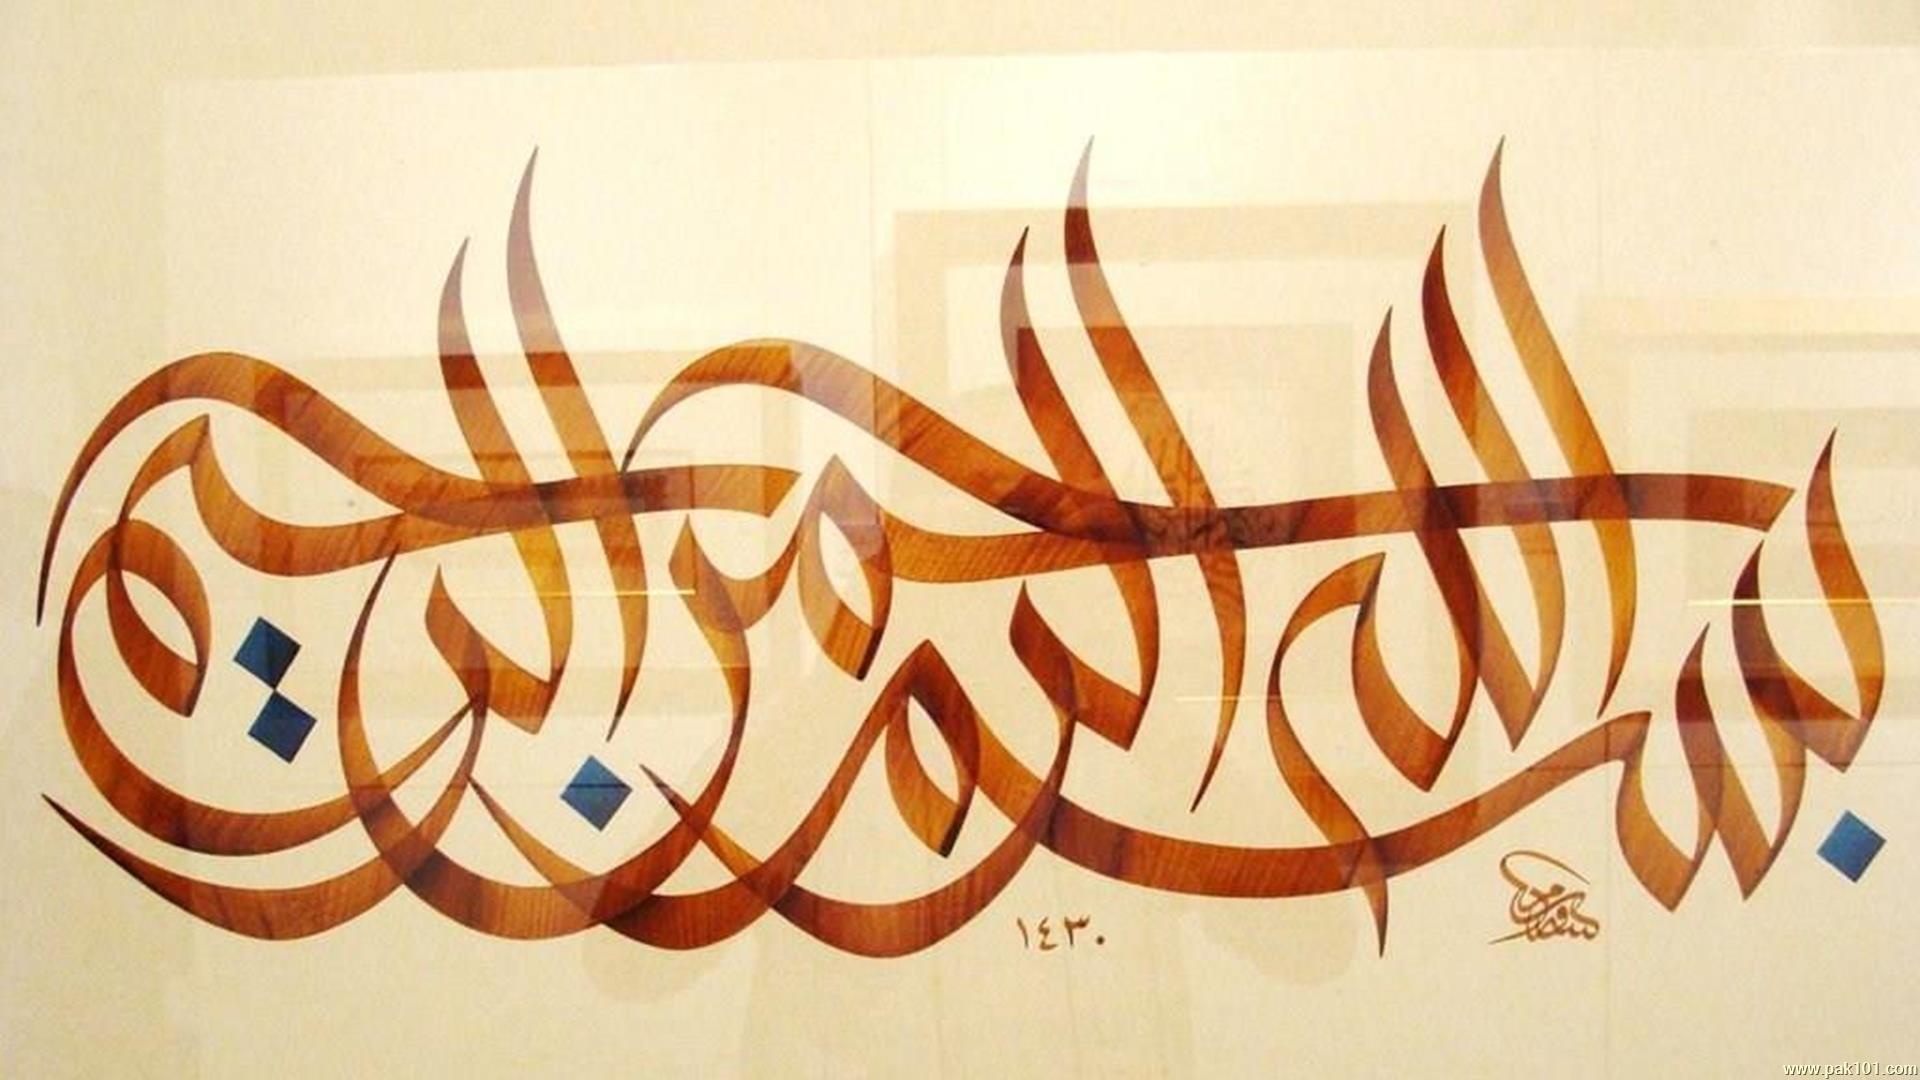 بسم الله الرحمن الرحيم
١٤٣٠
www.pak101.com